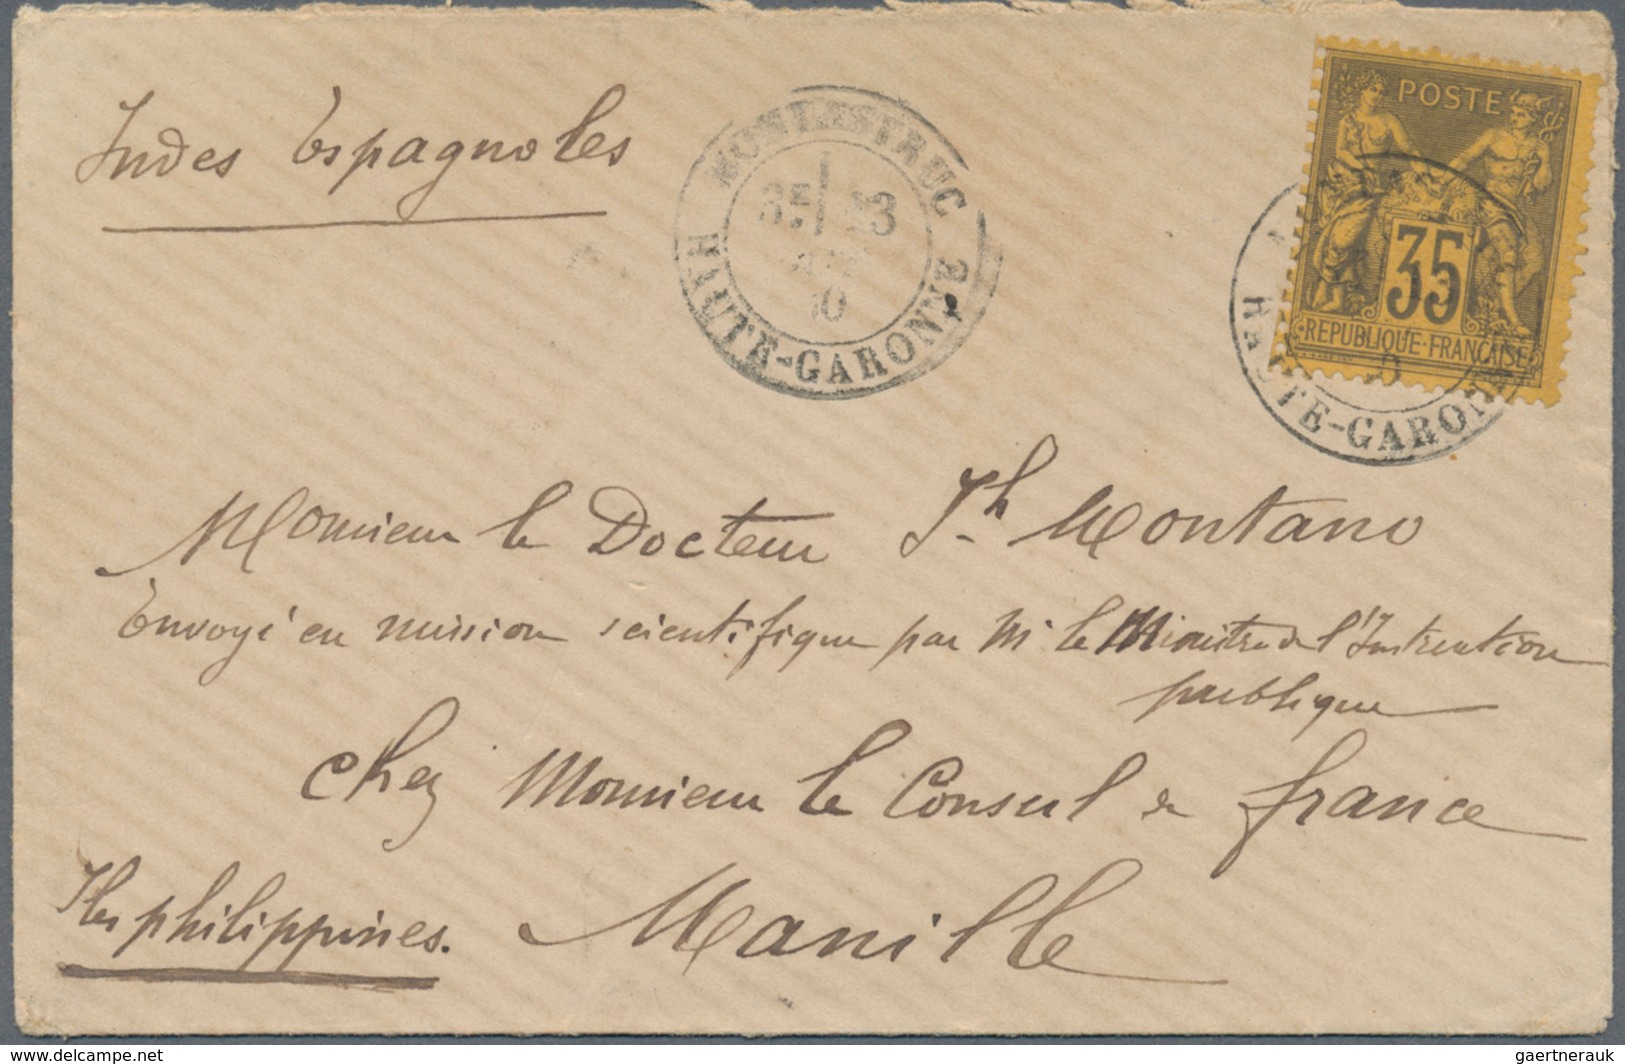 Indes Espagnoles
MONTASTRUC
HAUTE-GARONNE
POSTE
35
REPUBLIQUE·FRANÇAISE
HAUTE-GARONNE
Monsieur le Docteur Jh Montano
Envoyé en mission scientifique par Mr le Ministre de l'Instruction
publique
chez Monsieur le Consul de france
Iles philippines. Manille
www.delcampe.net
gaertnerauk